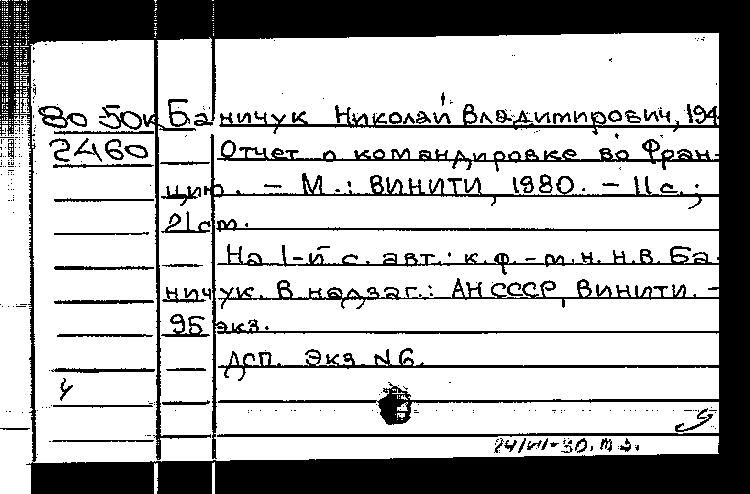 80 50к Баничук Николай Владимирович, 194
2460 Отчет о командировке во Фран-
цию. – М.: ВИНИТИ, 1980. – 11 с.;
21 см.
На 1-й с. авт.: к.ф.-м.н. Н.В. Ба
ничук. В надзаг.: АН СССР, ВИНИТИ. –
95 экз.
ДСП. Экз. N 6.